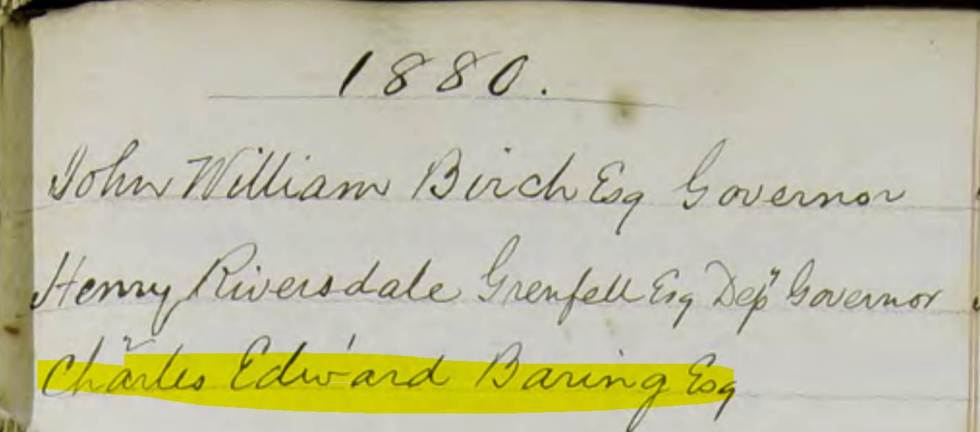 1880.
John William Birch Esq Governor
Henry Riversdale Grenfell Esq Depy Governor
Charles Edward Baring Esq